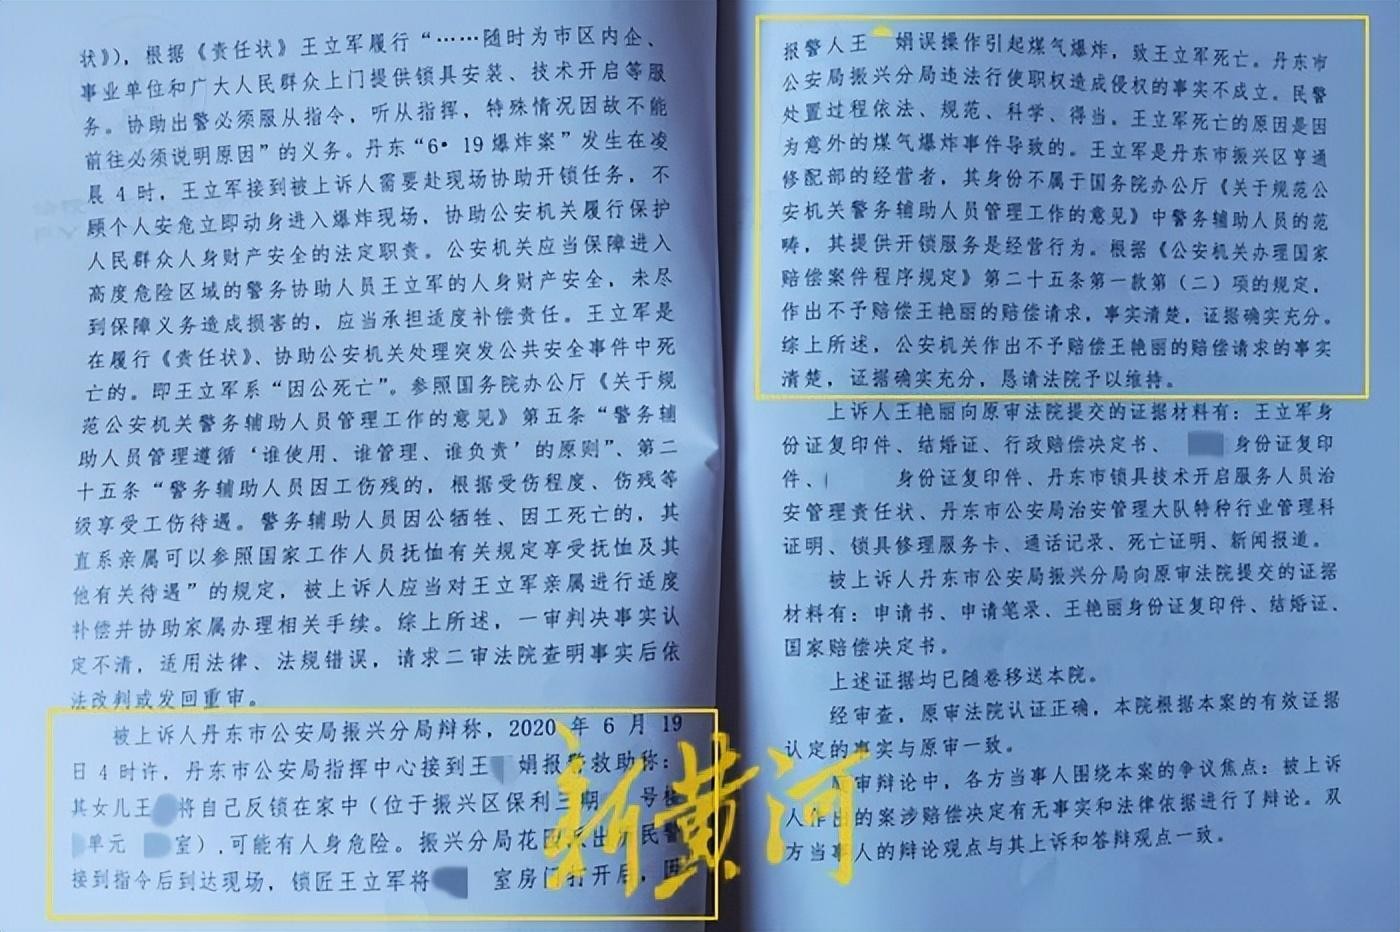 状》)，根据《责任状》王立军履行“……随时为市区内企、
事业单位和广大人民群众上门提供锁具安装、技术开启等服
务。协助出警必须服从指令，听从指挥，特殊情况因故不能
前往必须说明原因”的义务。丹东“6·19爆炸案”发生在凌
晨4时，王立军接到被上诉人需要赴现场协助开锁任务，不
顾个人安危立即动身进入爆炸现场，协助公安机关履行保护
人民群众人身财产安全的法定职责。公安机关应当保障进入
高度危险区域的警务协助人员王立军的人身财产安全，未尽
到保障义务造成损害的，应当承担适度补偿责任。王立军是
在履行《责任状》、协助公安机关处理突发公共安全事件中死
亡的。即王立军系“因公死亡”。参照国务院办公厅《关于规
范公安机关警务辅助人员管理工作的意见》第五条“警务辅
助人员管理遵循‘谁使用、谁管理、谁负责’的原则”、第二
十五条“警务辅助人员因工伤残的，根据受伤程度、伤残等
级享受工伤待遇。警务辅助人员因公牺牲、因工死亡的，其
直系亲属可以参照国家工作人员抚恤有关规定享受抚恤及其
他有关待遇”的规定，被上诉人应当对王立军亲属进行适度
补偿并协助家属办理相关手续。综上所述，一审判决事实认
定不清，适用法律、法规错误，请求二审法院查明事实后依
法改判或发回重审。
被上诉人丹东市公安局振兴分局辩称，2020年6月19
日4时许，丹东市公安局指挥中心接到王 娟报警救助称：
其女儿王 将自己反锁在家中（位于振兴区保利三期 号楼
单元 室），可能有人身危险。振兴分局花园派出所民警
接到指令后到达现场，锁匠王立军将 室房门打开后，因
报警人王 娟误操作引起煤气爆炸，致王立军死亡。丹东市
公安局振兴分局违法行使职权造成侵权的事实不成立。民警
处置过程依法、规范、科学、得当。王立军死亡的原因是因
为意外的煤气爆炸事件导致的。王立军是丹东市振兴区亨通
修配部的经营者，其身份不属于国务院办公厅《关于规范公
安机关警务辅助人员管理工作的意见》中警务辅助人员的范
畴，其提供开锁服务是经营行为。根据《公安机关办理国家
赔偿案件程序规定》第二十五条第一款第（二）项的规定，
作出不予赔偿王艳丽的赔偿请求，事实清楚，证据确实充分。
综上所述，公安机关作出不予赔偿王艳丽的赔偿请求的事实
清楚，证据确实充分，恳请法院予以维持。
上诉人王艳丽向原审法院提交的证据材料有：王立军身
份证复印件、结婚证、行政赔偿决定书、 身份证复印
件、 身份证复印件、丹东市锁具技术开启服务人员治
安管理责任状、丹东市公安局治安管理大队特种行业管理科
证明、锁具修理服务卡、通话记录、死亡证明、新闻报道。
被上诉人丹东市公安局振兴分局向原审法院提交的证据
材料有：申请书、申请笔录、王艳丽身份证复印件、结婚证、
国家赔偿决定书。
上述证据均已随卷移送本院。
经审查，原审法院认证正确，本院根据本案的有效证据
认定的事实与原审一致。
庭审辩论中，各方当事人围绕本案的争议焦点：被上诉
人作出的案涉赔偿决定有无事实和法律依据进行了辩论。双
方当事人的辩论观点与其上诉和答辩观点一致。
新黄河